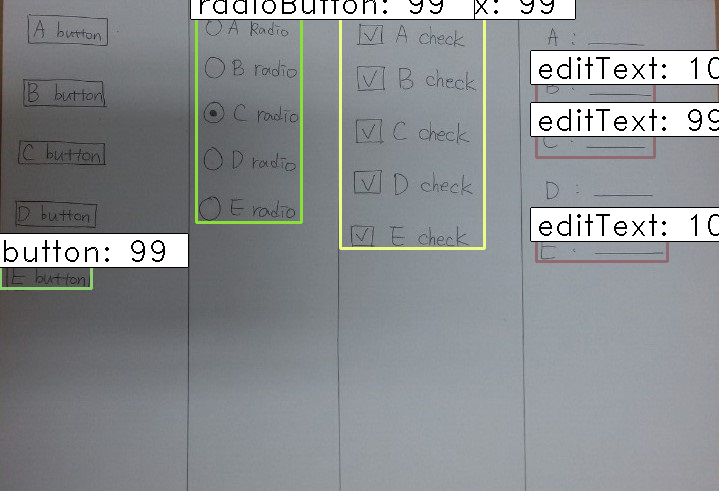 radioButton: 99 x: 99
A button
B button
C button
D button
button: 99
E button
A Radio
B radio
C radio
D radio
E radio
A check
B check
C check
D check
E check
A :
editText: 10
B :
editText: 99
C :
D :
editText: 10
E :